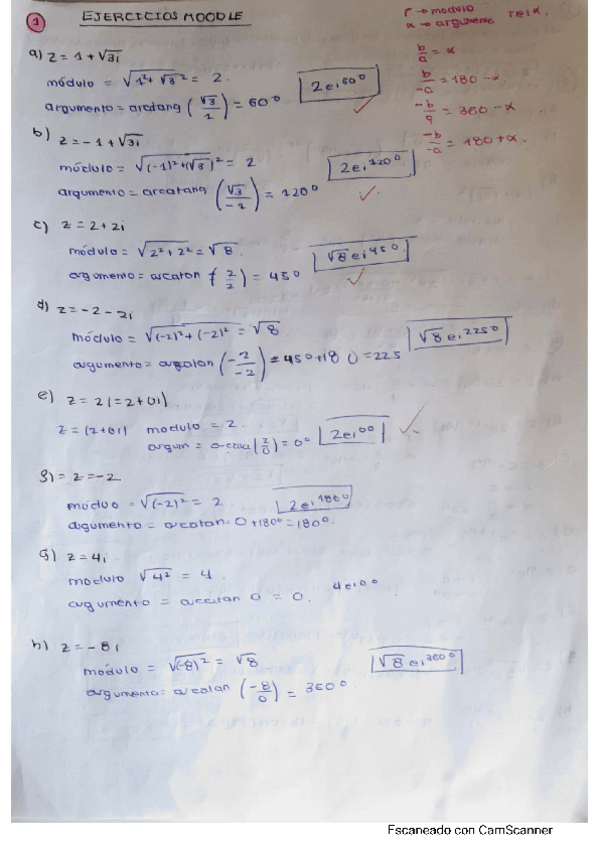 1 EJERCICIOS MOODLE
r → modulo reiα.
α → argumento
b/a = α
b/-a = 180 - α.
-b/a = 360 - α
-b/-a = 180 + α.
a) z = 1 + √3i
módulo = √1² + √3² = 2. 2ei60º
argumento = arctang (√3/1) = 60º
b) z = -1 + √3i
módulo = √(-1)² + (√3)² = 2 2ei120º
argumento = arcatang (√3/-1) = 120º
c) z = 2 + 2i
módulo = √2² + 2² = √8 √8 ei45º
argumento = arcatan (2/2) = 45º
d) z = -2 - 2i
módulo = √(-2)² + (-2)² = √8 √8 ei225º
argumento = arcatan (-2/-2) = 45º + 180 = 225
e) z = 2 (= 2 + 0i)
z = (2 + 0i) modulo = 2.
argum = arcta (2/0) = 0º 2ei0º
f) = z = -2
móduo = √(-2)² = 2 2ei180º
argumento = arcatan = 0 + 180º = 180º.
g) z = 4i
modulo √4² = 4
argumento = arcatan 0 = 0. 4ei0º
h) z = -8i
módulo = √(-8)² = √8 √8 ei360º
argumento = arcatan (-8/0) = 360º
Escaneado con CamScanner